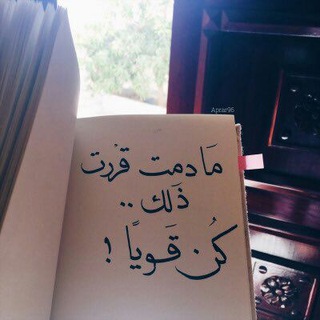 Apear96
مَادمت قرّرت
ذَلك ..
كُن قَويًا !